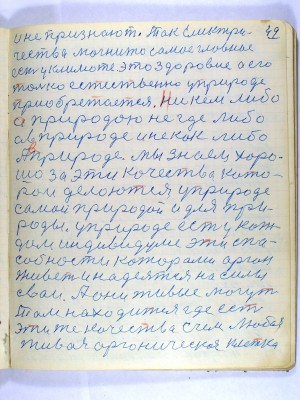 49
и не признают. Так Електри-
чества могнито самое главное
есть у климоте это здоровие а его
толко естественно у природе
приобретается. Ни кем либо
а природою не где либо
а в природе и не как либо
А природе. мы знаем хоро-
шо за эти качества кото-
рои делоются у природе
самой природой и для при-
роды. у природе есть у кож-
дом индивидуме эти спо-
собности которами орган
живет и надеятся на силы
сваи. А они живые могут
там находится где есть
эти же качества с чем любая
живая органическоя клетка